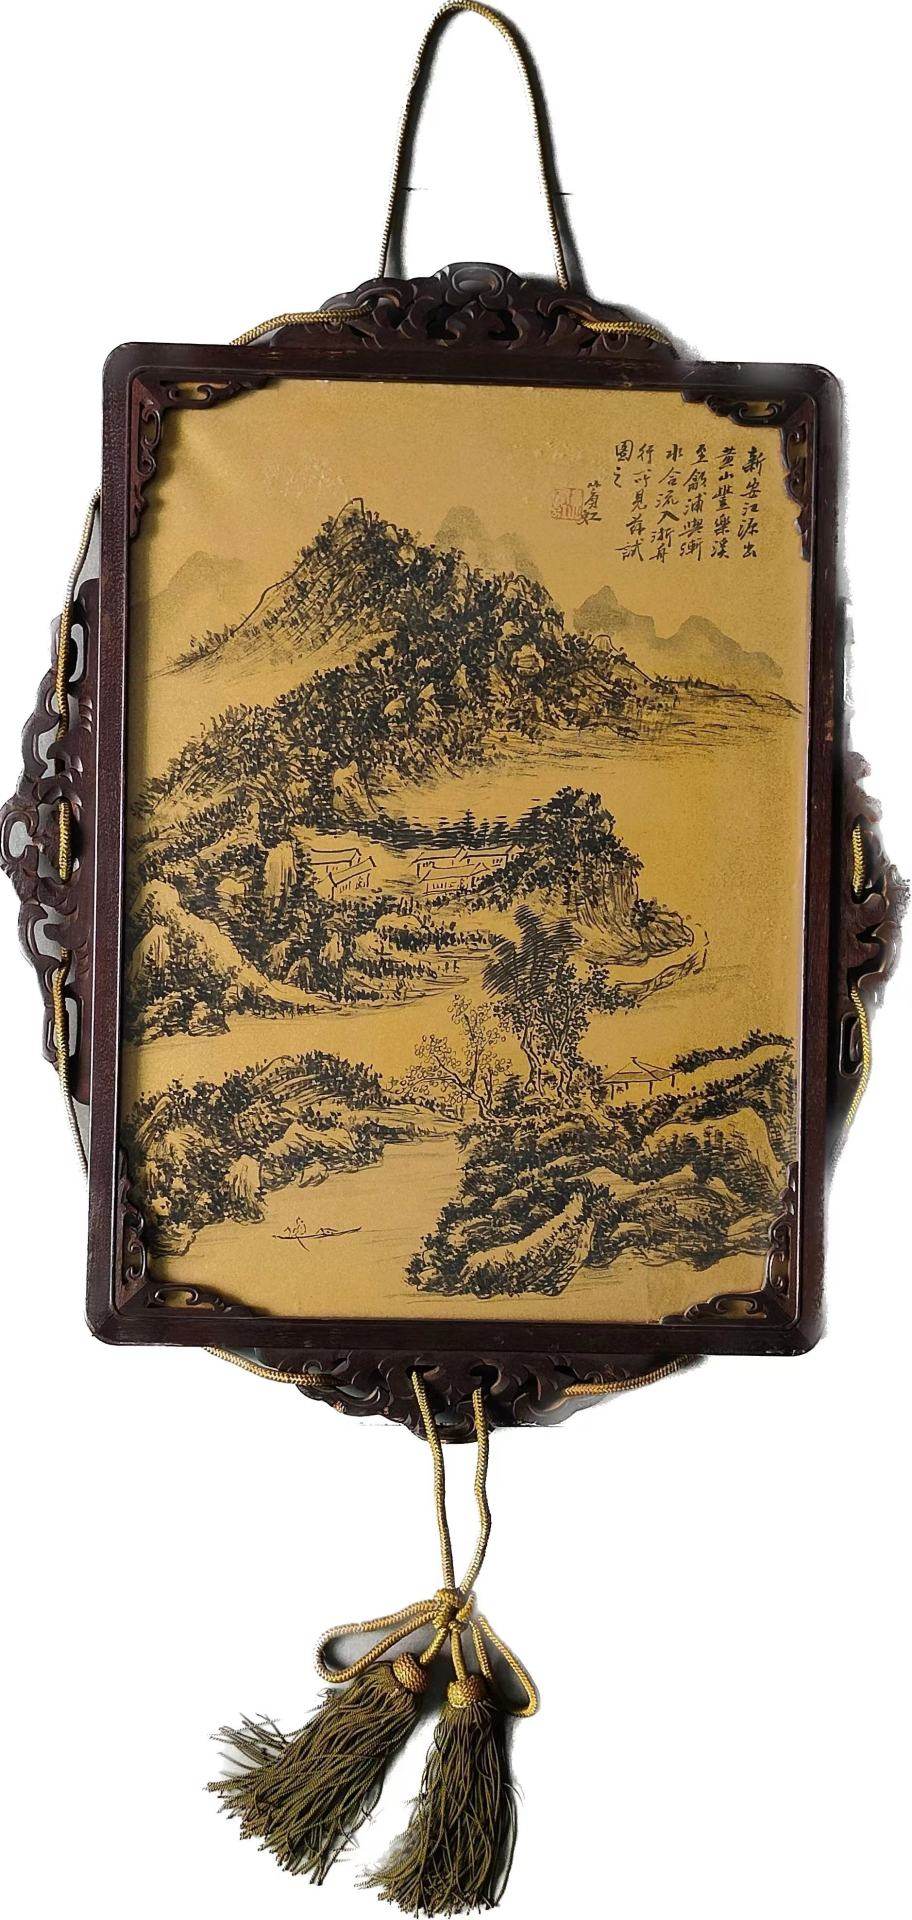 新安江源出
黄山豐樂溪
至歙浦與漸
水合流入浙舟
行所見兹試
圖之
賓虹